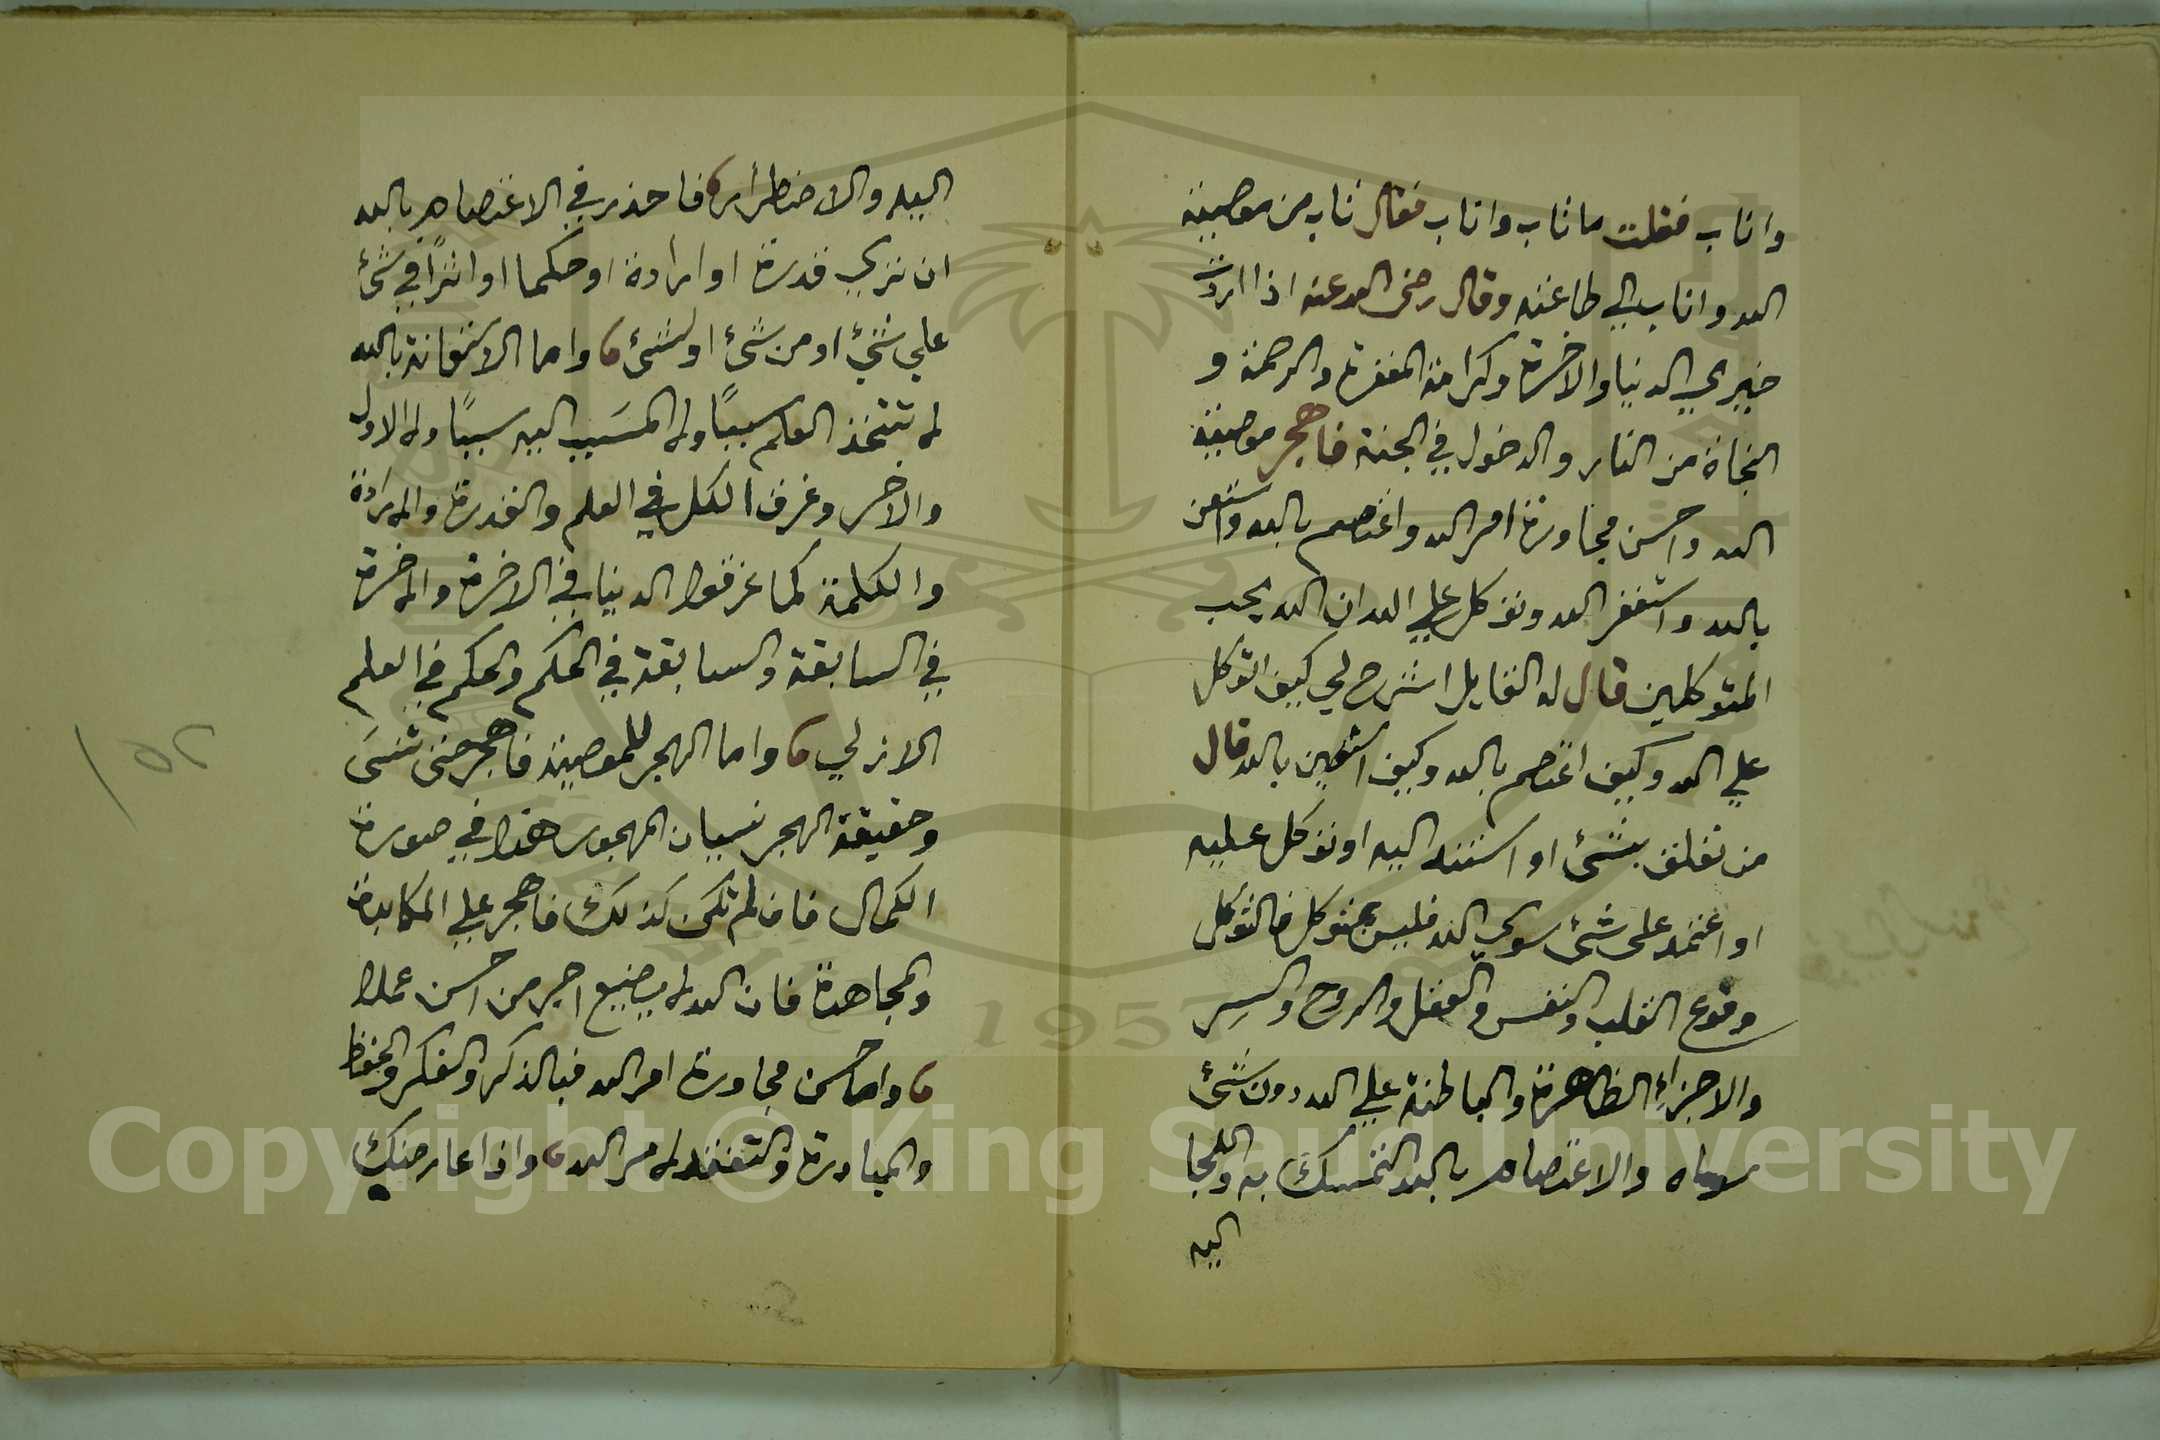 واناب فقلت ماتاب واناب فقال تاب من معصية
الله واناب الي طاعته وقال رضى الله عنه اذا اردت
خيري الدنيا والاخرة وكرامة المغفرة والرحمة و
النجاة من النار والدخول في الجنة فاهجر معصية
الله واحسن مجاورة امر الله واعتصم بالله واستعن
بالله واستغفر الله وتوكل علي الله ان الله يحب
المتوكلين قال له القايل اشرح لي كيف اتوكل
علي الله وكيف اعتصم بالله وكيف استعين بالله قال
من تعلق بشئ او استند اليه او توكل عليه
او اعتمد على شئ سوي الله فليس بمتوكل فالتوكل
وقوع القلب والنفس والعقل والروح والسر
والاجزاء الظاهرة والباطنة علي الله دون شئ
سواه والاعتصام بالله التمسك به واللجا
اليه
اليه والاضطرار فاحذر في الاعتصام بالله
ان تري قدرة او ارادة او حكما او اثرا في شئ
علي شئ او من شئ او لشئ واما الاستعانة بالله
لا تتخذ العلم سببًا ولا المسَبب اليه سببًا ولا الاول
والاخر وغرف الكل في العلم والقدرة والارادة
والكلمة كما غرقوا الدنيا في الاخرة والاخرة
في السابقة والسابقة في الحكم والحكم في العلم
الازلي واما الهجر للمعصية فاهجر حتى تنسَى
وحقيقة الهجر نسيان المهجور هذا في صورة
الكمال فان لم تكن كذلك فاهجر علي المكابدة
والمجاهدة فان الله لا يضيع اجر من احسن عملا
واما حسن مجاورة امر الله فبالذكر والفكر والحفظ
والمبادرة والتفقد لامر الله واذا عارضك
١٥٢
Copyright © King Saud University
1957